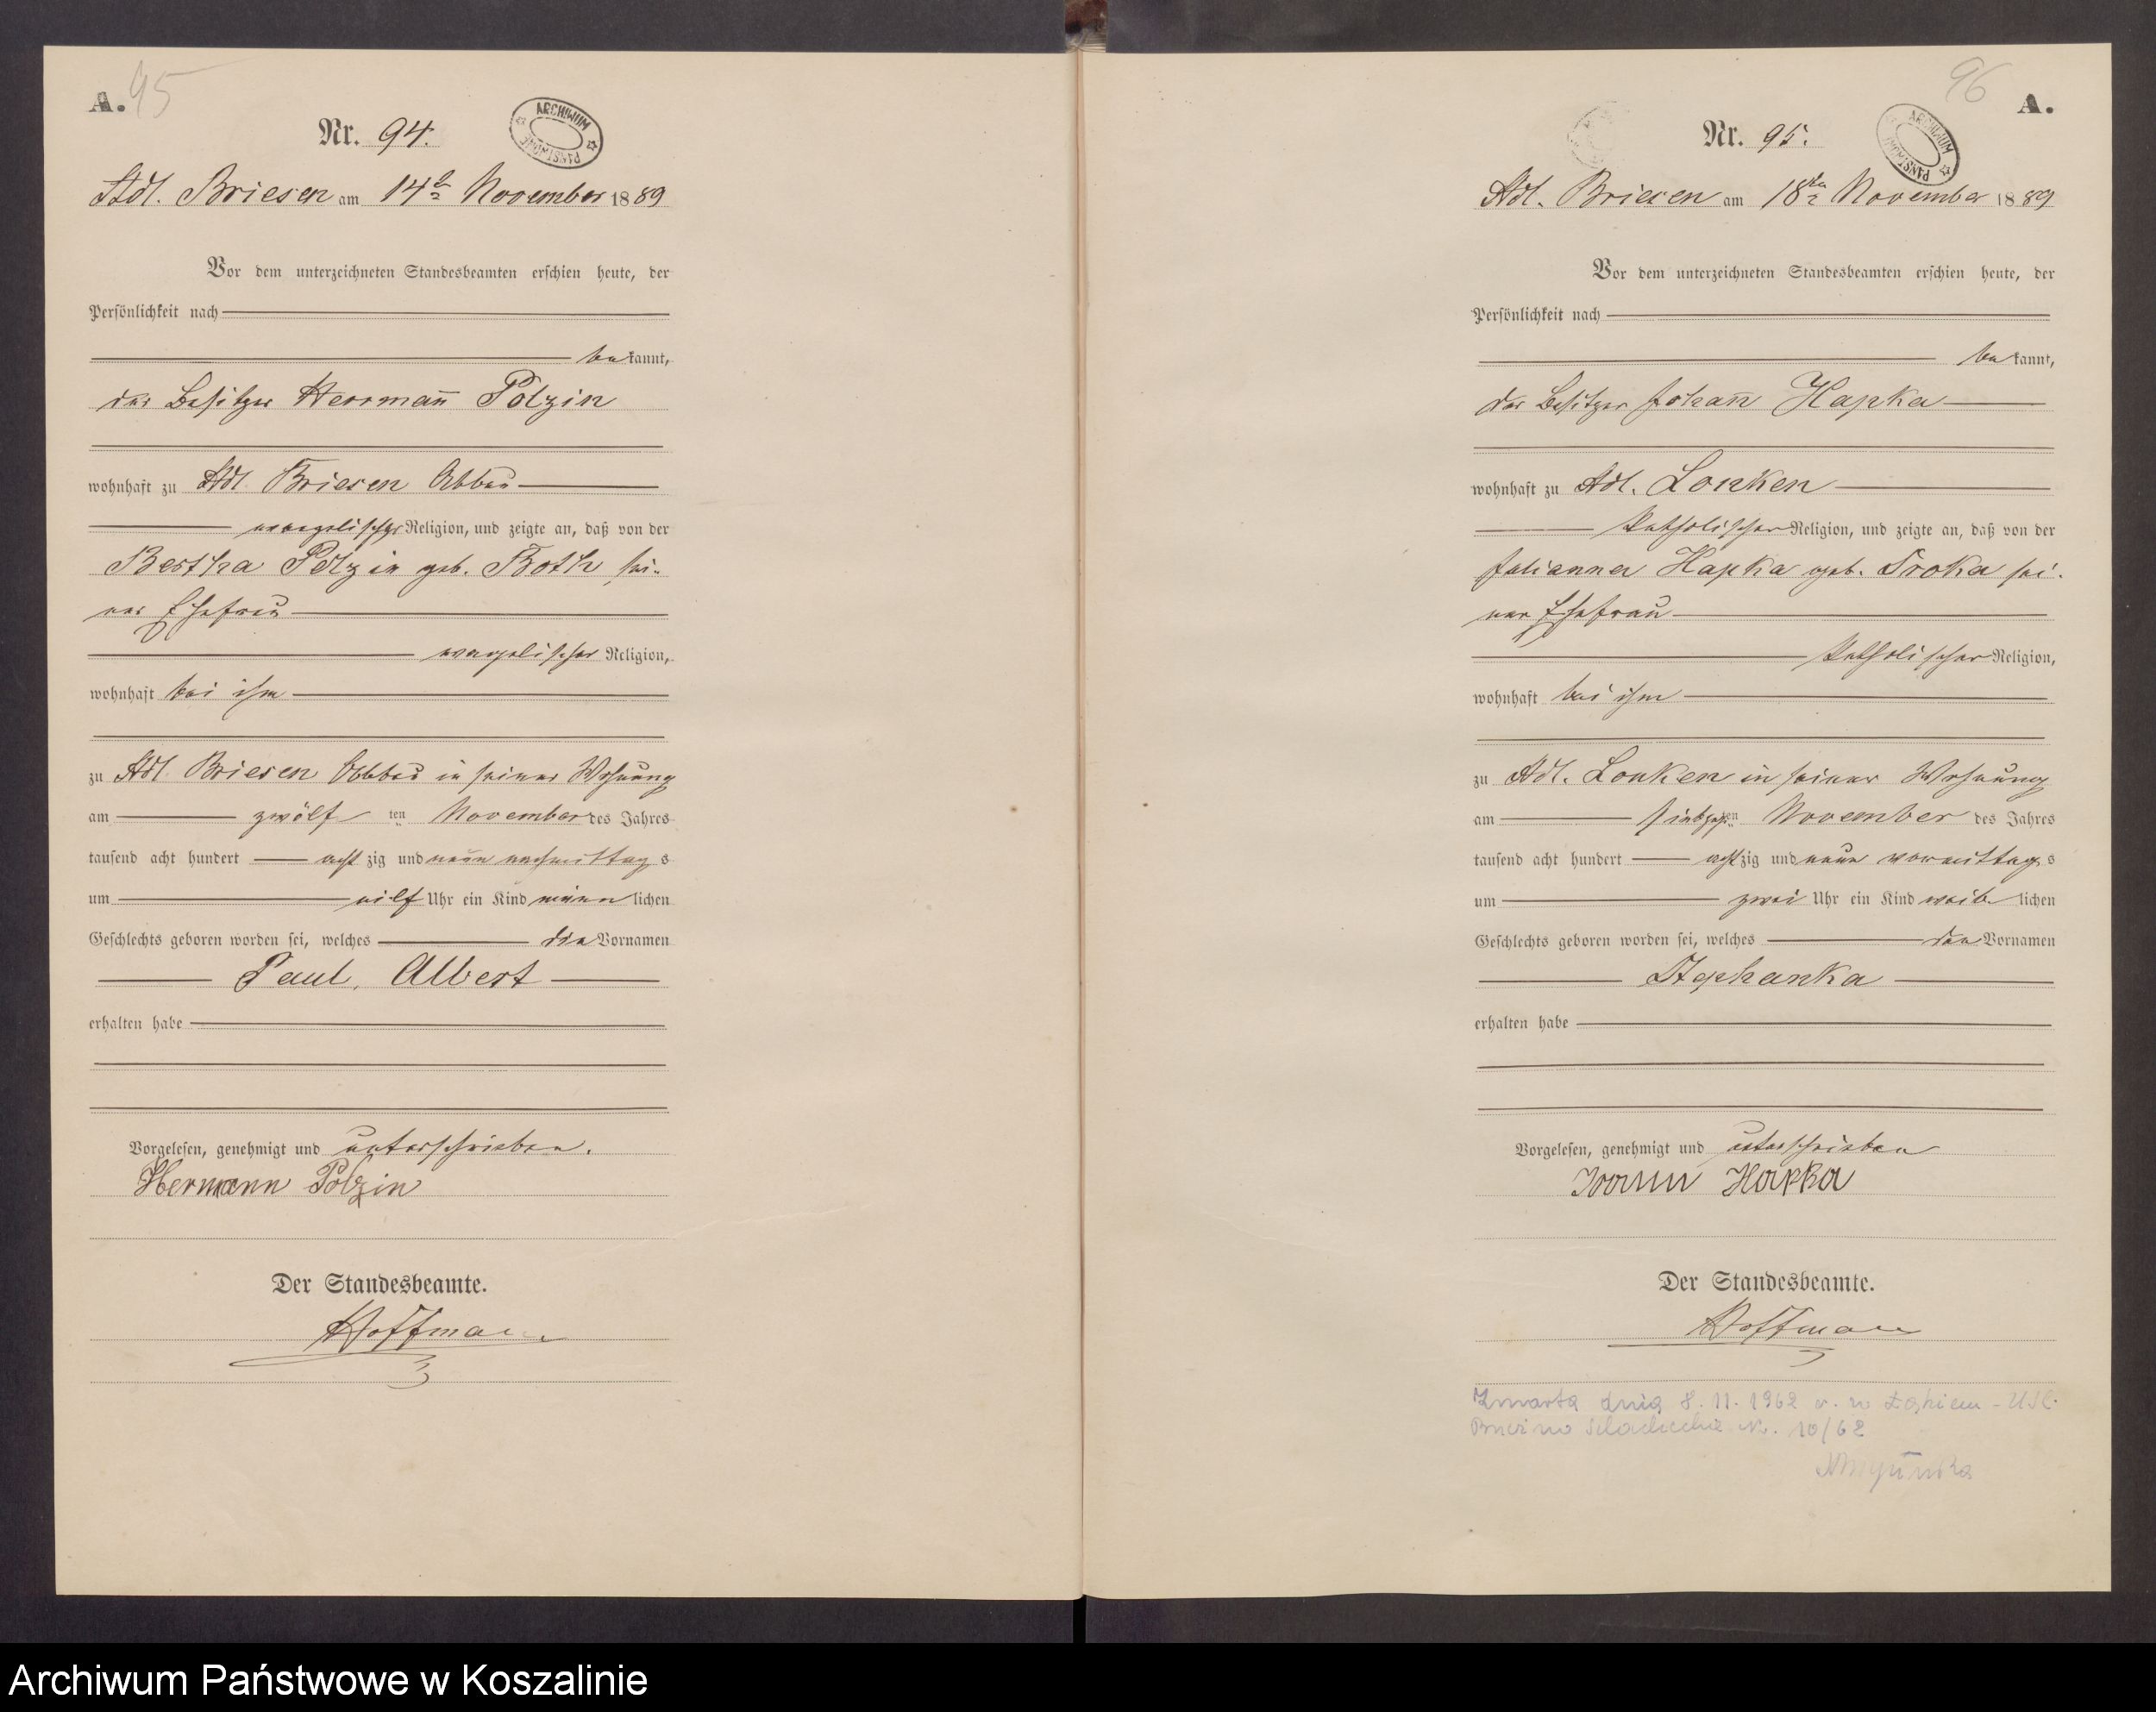 A. 95
Nr. 94.
ARCHIWUM PAŃSTWOWE
Adl. Briesen am 14t November 1889
Vor dem unterzeichneten Standesbeamten erschien heute, der
Persönlichkeit nach
bekannt,
der Besitzer Herrmann̄ Polzin
wohnhaft zu Adl. Briesen Abbau
evangelischer Religion, und zeigte an, daß von der
Bertha Polzin geb. Both sei-
ner Ehefrau
evangelischer Religion,
wohnhaft bei ihm
zu Adl. Briesen Abbau in seiner Wohnung
am zwölften November des Jahres
tausend acht hundert achtzig und neun nachmittags
um eilf Uhr ein Kind männlichen
Geschlechts geboren worden sei, welches die Vornamen
Paul, Albert
erhalten habe
Vorgelesen, genehmigt und unterschrieben.
Hermann Polzin
Der Standesbeamte.
Hoffmann
96 A.
Nr. 95.
ARCHIWUM PAŃSTWOWE
Adl. Briesen am 18ten November 1889
Vor dem unterzeichneten Standesbeamten erschien heute, der
Persönlichkeit nach
bekannt,
der Besitzer Johan̄n Hapka
wohnhaft zu Adl. Lonken
katholischer Religion, und zeigte an, daß von der
Julianna Hapka geb. Sroka sei-
ner Ehefrau
katholischer Religion,
wohnhaft bei ihm
zu Adl. Lonken in seiner Wohnung
am siebzehnten November des Jahres
tausend acht hundert achtzig und neun vormittags
um zwei Uhr ein Kind weiblichen
Geschlechts geboren worden sei, welches den Vornamen
Stephanka
erhalten habe
Vorgelesen, genehmigt und unterschrieben
Joann Hapka
Der Standesbeamte.
Hoffmann
Zmarła dnia 8.11.1962 r. w Łąkiem - USC.
Brzeźno Szlacheckie Nr. 10/62
Archiwum Państwowe w Koszalinie